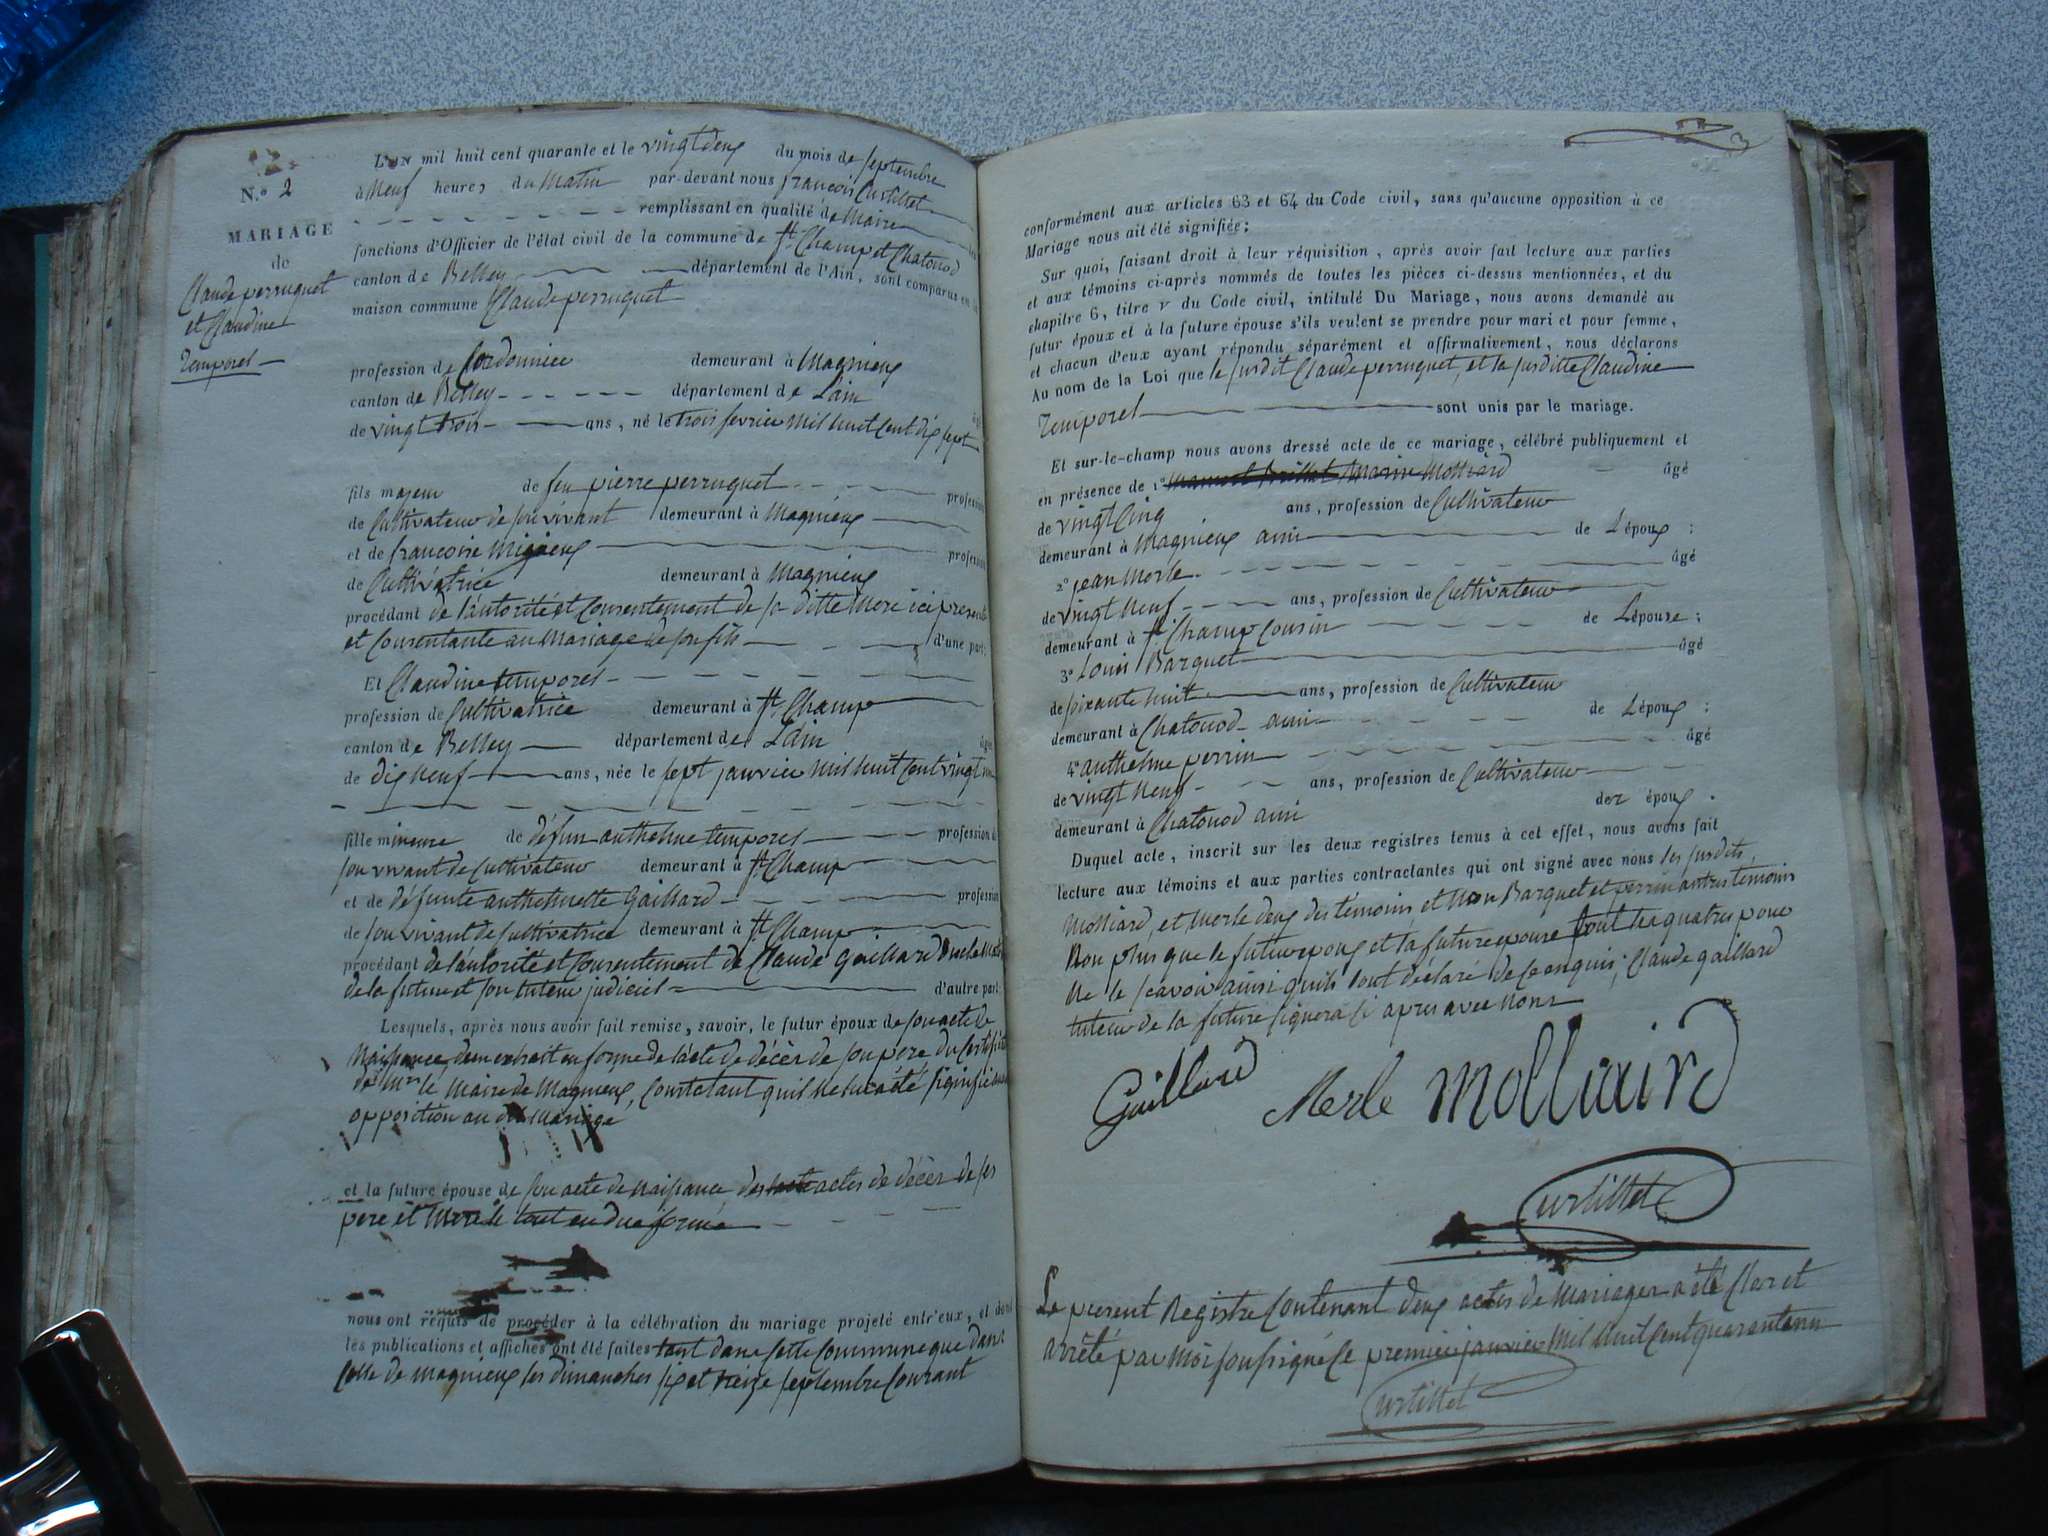 N.º 2
MARIAGE
de
Claude perruquet
et Claudine
Temporel
L'AN mil huit cent quarante et le vingt deux du mois de septembre
à Neuf heures du Matin par-devant nous françois Curtillet
remplissant en qualité de Maire les
fonctions d'Officier de l'état civil de la commune de St. Champ et Chatonod
canton de Belley département de l'Ain, sont comparus en
maison commune Claude perruquet
profession de Cordonnier demeurant à Magnieux
canton de Belley département de Lain
âgé
de vingt trois ans, né le trois fevrier Mil huit Cent dix sept
fils majeur de feu pierre perruquet profession
de Cultivateur de son vivant demeurant à Magnieux
et de francoise Migieux profession
de Cultivatrice demeurant à Magnieux
procédant de l'autorité et Consentement de sa ditte Mere ici presente
et Consentante au Mariage de son fils d'une part;
Et Claudine temporel
profession de Cultivatrice demeurant à St. Champ
canton de Belley département de Lain
âgée
de dix Neuf ans, née le sept janvier Mil huit Cent vingt un
fille mineure de défun anthelme temporel profession de
son vivant de Cultivateur demeurant à St. Champ
et de défunte anthelmette Gaillard profession
de son vivant de Cultivatrice demeurant à St. Champ
procédant de l'autorité et Consentement de Claude Gaillard Oncle
de la future et son tuteur judiciel d'autre part;
Lesquels, après nous avoir fait remise, savoir, le futur époux de son acte de
Naissance, dun extrait en forme de l'acte de décès de son pere du Certificat
de Mr. le Maire de Magnieux, Constatant quil ne lui a été signifié aucune
opposition au dit Mariage
et la future épouse de son acte de Naissance des actes de décès de ses
pere et Mere le tout en due forme
nous ont requis de procéder à la célébration du mariage projeté entr'eux, et dont
les publications et affiches ont été faites tant dans Cette Commune que dans
Celle de Magnieux les dimanches six et treize septembre Courant
conformément aux articles 63 et 64 du Code civil, sans qu'aucune opposition à ce
Mariage nous ait été signifiée;
Sur quoi, faisant droit à leur réquisition, après avoir fait lecture aux parties
et aux témoins ci-après nommés de toutes les pièces ci-dessus mentionnées, et du
chapitre 6, titre v du Code civil, intitulé Du Mariage, nous avons demandé au
futur époux et à la future épouse s'ils veulent se prendre pour mari et pour femme,
et chacun d'eux ayant répondu séparément et affirmativement, nous déclarons
Au nom de la Loi que le susdit Claude perruquet, et la susditte Claudine
Temporel sont unis par le mariage.
Et sur-le-champ nous avons dressé acte de ce mariage, célébré publiquement et
en présence de 1º Molliard âgé
de vingt Cinq ans, profession de Cultivateur
demeurant à Magnieux ami de Lépoux;
2º jean Merle âgé
de vingt Neuf ans, profession de Cultivateur
demeurant à St. Champ Cousin de Lépouse;
3º Louis Barquet âgé
de soixante huit ans, profession de Cultivateur
demeurant à Chatonod ami de Lépoux;
4º anthelme perrin âgé
de vingt Neuf ans, profession de Cultivateur
demeurant à Chatonod ami des époux.
Duquel acte, inscrit sur les deux registres tenus à cet effet, nous avons fait
lecture aux témoins et aux parties contractantes qui ont signé avec nous les susdits
Molliard, et Merle deux des témoins, et Non Barquet et perrin autres témoins
Non plus que le futur epoux et la future epouse tout les quatres pour
Ne le scavoir ainsi quils l'ont déclaré de Ce enquis; Claude gaillard
tuteur de la future signera Ci apres avec Nous
Gaillard Merle Molliaird
Curtillet
Le present Registre Contenant deux actes de Mariages a été Clos et
arrêté par Moi soussigné Ce premier janvier Mil huit Cent quarante un
Curtillet